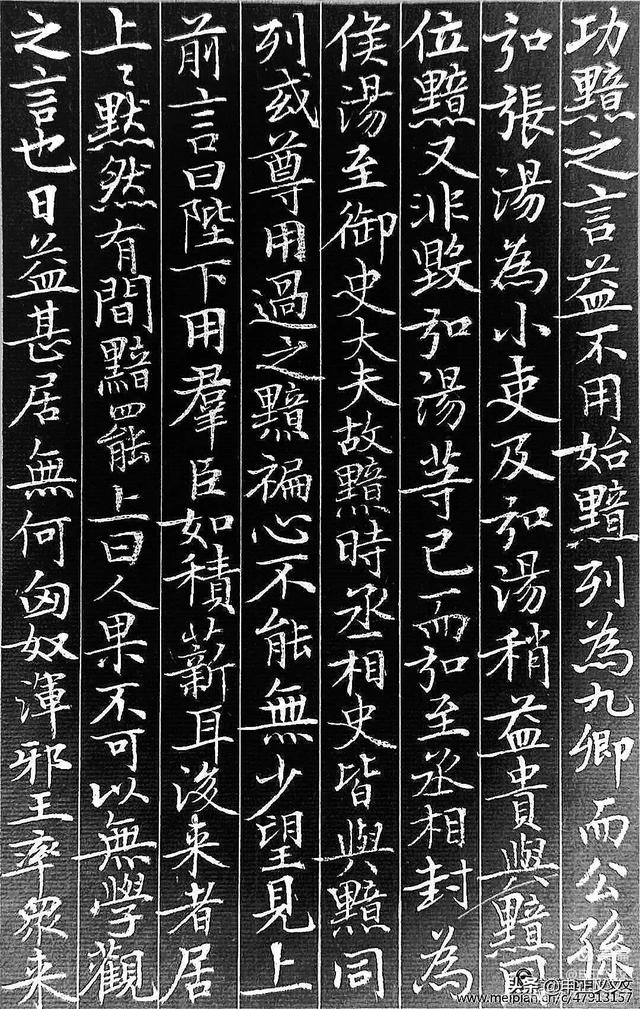 功黯之言益不用始黯列為九卿而公孫
弘張湯為小吏及弘湯稍益貴與黯同
位黯又非毀弘湯等已而弘至丞相封為
侯湯至御史大夫故黯時丞相史皆與黯同
列或尊用過之黯褊心不能無少望見上
前言曰陛下用羣臣如積薪耳後来者居
上〻黙然有間黯罷上曰人果不可以無學觀
之言也日益甚居無何匈奴渾邪王率衆来
www.meipian.cn/c/47313157